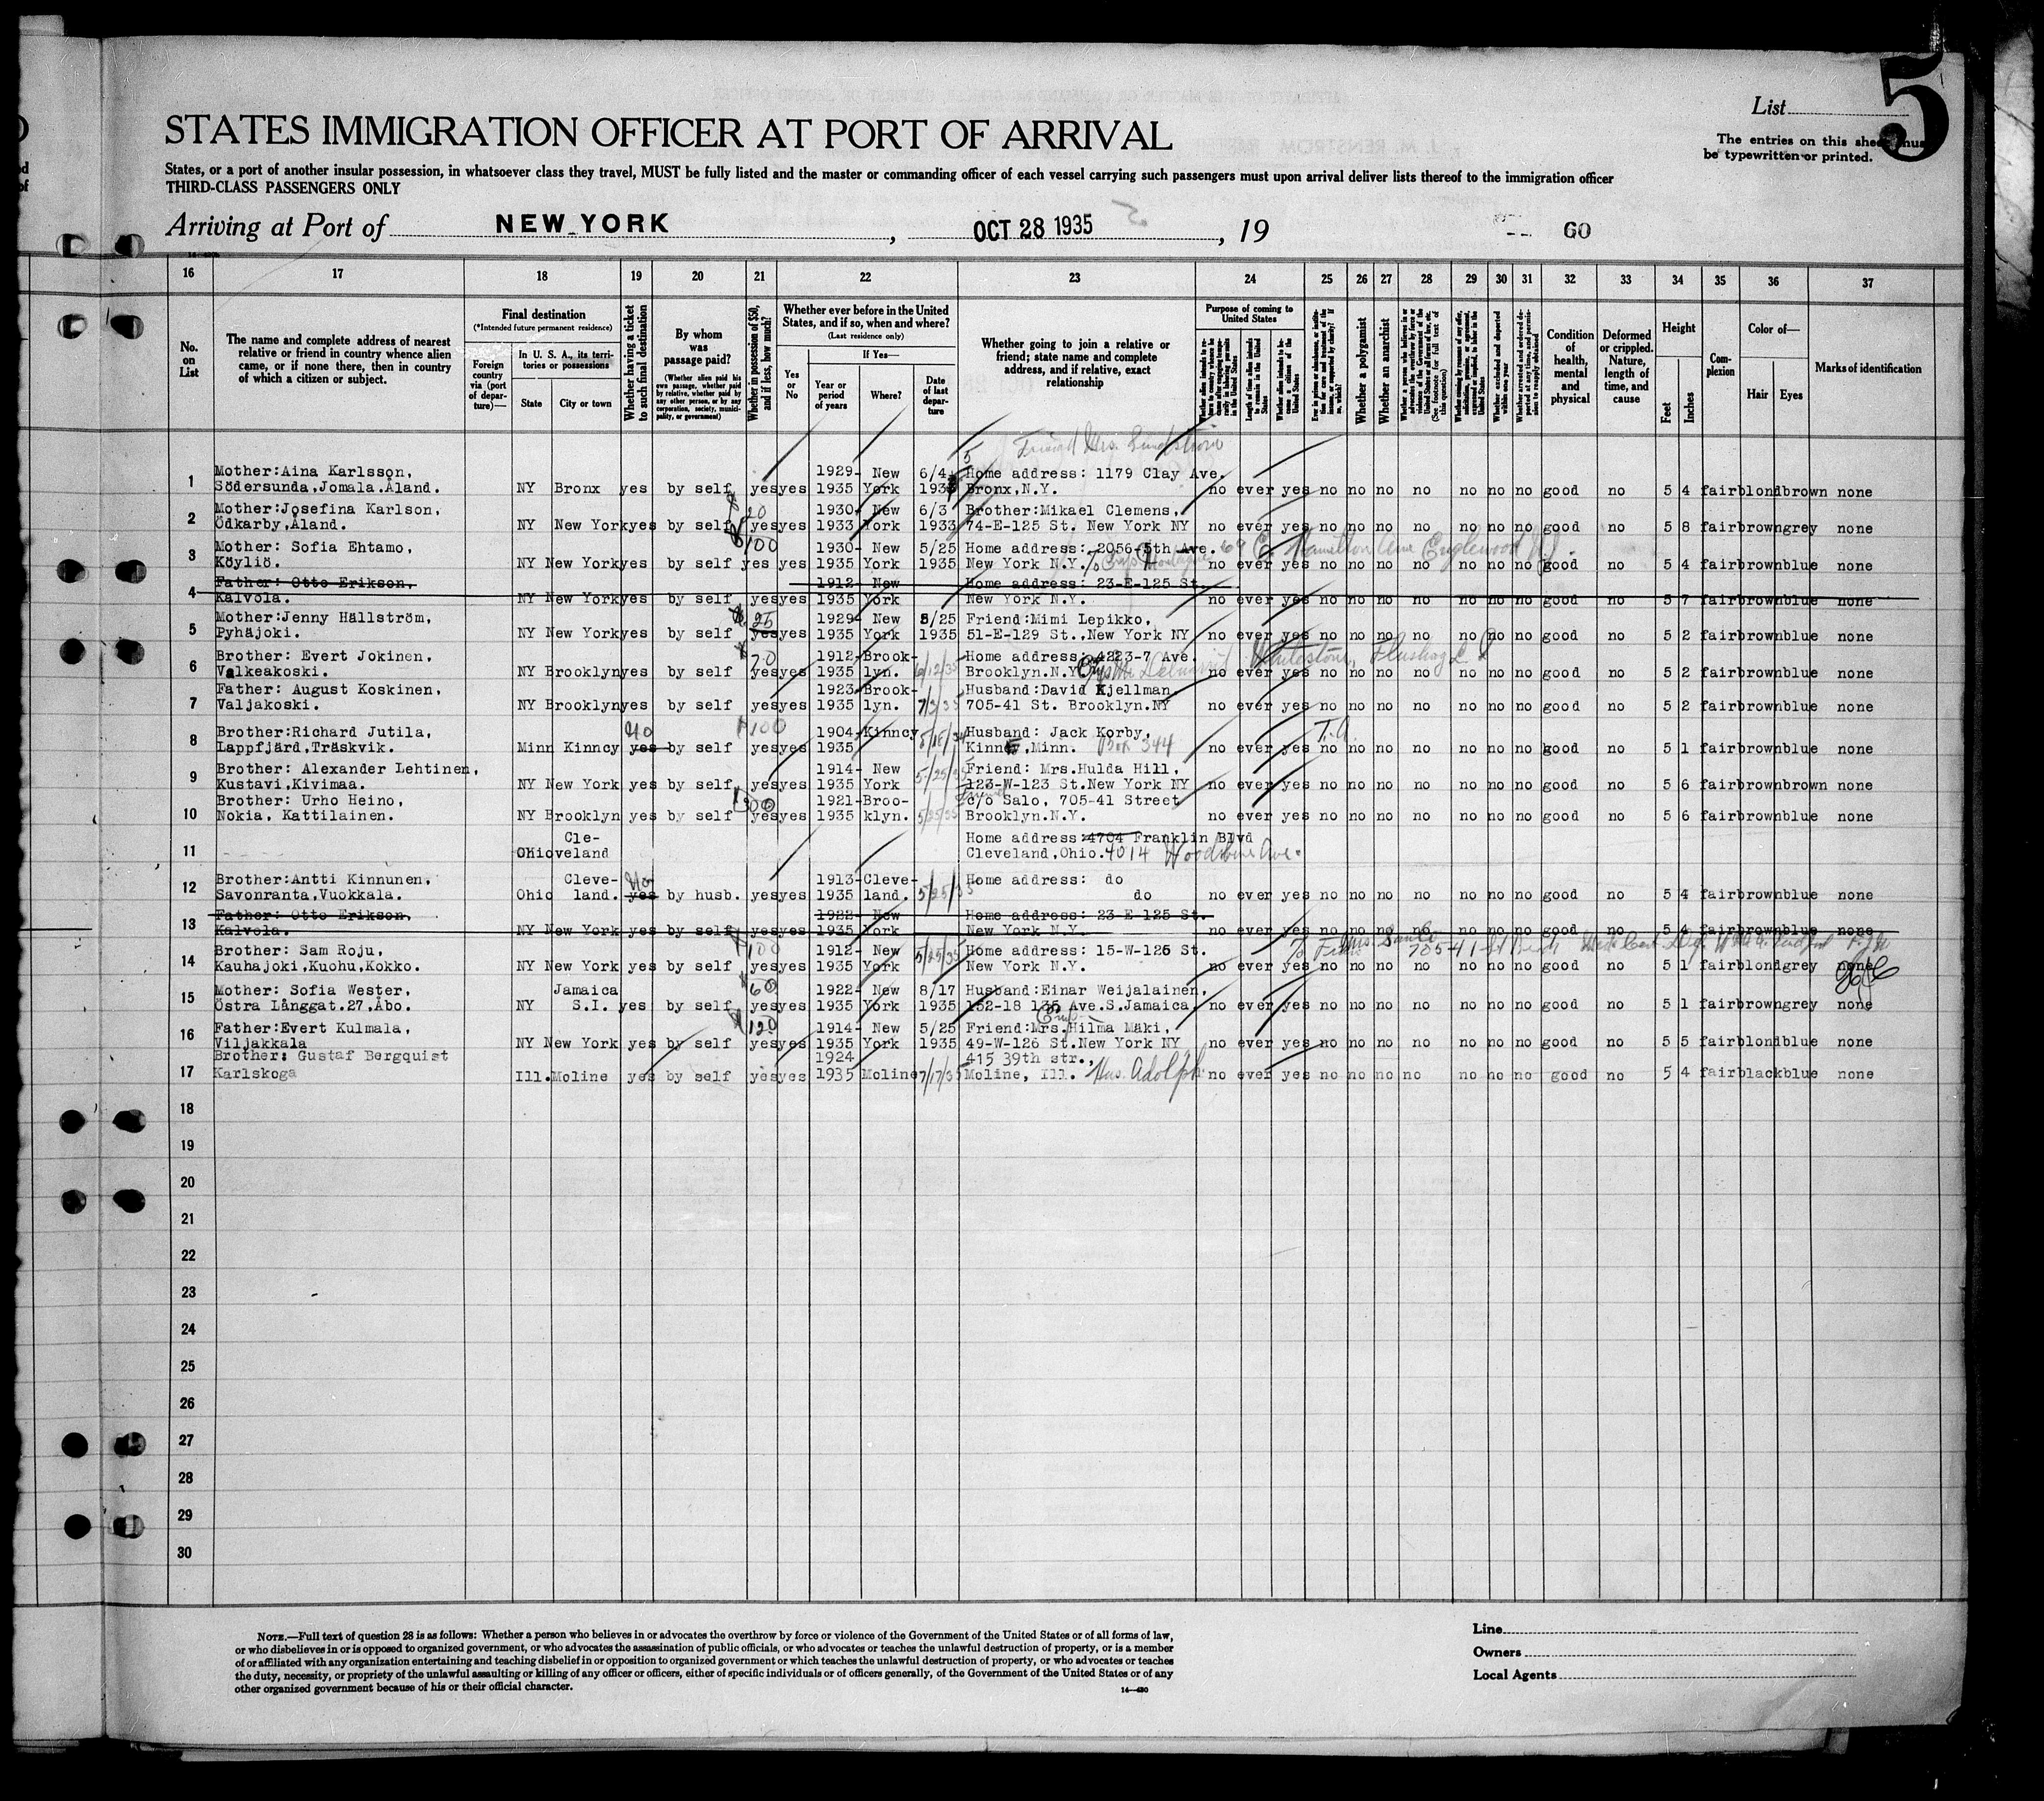 List
5
The entries on this sheet must
be typewritten or printed.
STATES IMMIGRATION OFFICER AT PORT OF ARRIVAL
States, or a port of another insular possession, in whatsoever class they travel, MUST be fully listed and the master or commanding officer of each vessel carrying such passengers must upon arrival deliver lists thereof to the immigration officer
THIRD-CLASS PASSENGERS ONLY
Arriving at Port of NEW YORK , OCT 28 1935 , 19 60
16 17 18 19 20 21 22 23 24 25 26 27 28 29 30 31 32 33 34 35 36 37
No. on List
The name and complete address of nearest relative or friend in country whence alien came, or if none there, then in country of which a citizen or subject.
Final destination
(*Intended future permanent residence)
Foreign country via (port of departure)—
In U. S. A., its territories or possessions
State
City or town
Whether having a ticket to such final destination
By whom was passage paid?
(Whether alien paid his own passage, whether paid by relative, whether paid by any other person, or by any corporation, society, municipality, or government)
Whether in possession of $50, and if less, how much?
Whether ever before in the United States, and if so, when and where?
(Last residence only)
Yes or No
If Yes—
Year or period of years
Where?
Date of last departure
Whether going to join a relative or friend; state name and complete address, and if relative, exact relationship
Purpose of coming to United States
Length of time alien intends to remain in the United States
Whether alien intends to become a citizen of the United States
Whether a polygamist
Whether an anarchist
Condition of health, mental and physical
Deformed or crippled. Nature, length of time, and cause
Height
Feet
Inches
Complexion
Color of—
Hair
Eyes
Marks of identification
Friend Mrs. Lindstrom
1 Mother:Aina Karlsson, 1929- New 6/4 Home address: 1179 Clay Ave.
Södersunda,Jomala.Åland. NY Bronx yes by self yes yes 1935 York Bronx,N.Y. no ever yes no no no no no no no good no 5 4 fair blond brown none
2 Mother:Josefina Karlson, 20 1930- New 6/3 Brother:Mikael Clemens,
Ödkarby,Åland. NY New York yes by self yes yes 1933 York 1933 74-E-125 St. New York NY no ever yes no no no no no no no good no 5 8 fair brown grey none
3 Mother: Sofia Ehtamo, $100 1930- New 5/25 Home address: 2056-5th Ave. 69 E. Hamilton Ave Englewood N.J.
Köyliö. NY New York yes by self yes yes 1935 York 1935 New York N.Y. no ever yes no no no no no no no good no 5 4 fair brown blue none
4 Father: Otto Erikson, 1912- New Home address: 23-E-125 St.
Kalvola. NY New York yes by self yes yes 1935 York New York N.Y. no ever yes no no no no no no no good no 5 7 fair brown blue none
5 Mother:Jenny Hällström, 25 1929- New 5/25 Friend:Mimi Lepikko,
Pyhäjoki. NY New York yes by self yes yes 1935 York 1935 51-E-129 St.,New York NY no ever yes no no no no no no no good no 5 2 fair brown blue none
6 Brother: Evert Jokinen, 20 1912- Brook- Home address: 4223-7 Ave. Whitestone, Flushing L. I
Valkeakoski. NY Brooklyn yes by self yes yes 1935 lyn. 6/12/35 Brooklyn.N.Y. no ever yes no no no no no no no good no 5 2 fair brown blue none
7 Father: August Koskinen, 1923- Brook- Husband:David Kjellman
Valjakoski. NY Brooklyn yes by self yes yes 1935 lyn. 7/3/35 705-41 St. Brooklyn.NY no ever yes no no no no no no no good no 5 2 fair brown blue none
8 Brother:Richard Jutila, No 100 1904- Kinney Husband: Jack Korby, T.A.
Lappfjärd,Träskvik. Minn Kinncy yes by self yes yes 1935 Minn. Box 344 no ever yes no no no no no no no good no 5 1 fair brown blue none
9 Brother: Alexander Lehtinen, 1914- New Friend: Mrs.Hulda Hill,
Kustavi,Kivimaa. NY New York yes by self yes yes 1935 York 5/25/35 123-W-123 St.New York NY no ever yes no no no no no no no good no 5 6 fair brown brown none
10 Brother: Urho Heino, 300 1921- Broo- c/o Salo, 705-41 Street
Nokia, Kattilainen. NY Brooklyn yes by self yes yes 1935 klyn. 5/25/35 Brooklyn.N.Y. no ever yes no no no no no no no good no 5 6 fair brown blue none
11 Cle- Home address:4704 Franklin Blvd
Ohio veland Cleveland,Ohio. 4014 Woodbine Ave.
12 Brother:Antti Kinnunen, Cleve- No 1913- Cleve- Home address: do
Savonranta,Vuokkala. Ohio land. yes by husb. yes yes 1935 land. 5/25/35 do no ever yes no no no no no no no good no 5 4 fair brown blue none
13 Father: Otto Erikson, 1922- New Home address: 23-E-125 St.
Kalvola. NY New York yes by self yes yes 1935 York New York N.Y. no ever yes no no no no no no no good no 5 4 fair brown blue none
14 Brother: Sam Roju, 100 1912- New Home address: 15-W-126 St. 705-41-St
Kauhajoki,Kuohu,Kokko. NY New York yes by self yes yes 1935 York 5/25/35 New York N.Y. no ever yes no no no no no no no good no 5 1 fair blond grey none
15 Mother: Sofia Wester, Jamaica 60 1922- New 8/17 Husband:Einar Weijalainen,
Östra Långgat.27,Åbo. NY S.I. yes by self yes yes 1935 York 1935 152-18 135 Ave.S.Jamaica, no ever yes no no no no no no no good no 5 1 fair brown grey none
16 Father:Evert Kulmala, 120 1914- New 5/25 Friend:Mrs.Hilma Mäki,
Viljakkala NY New York yes by self yes yes 1935 York 1935 49-W-126 St.New York NY no ever yes no no no no no no no good no 5 5 fair blond blue none
17 Brother: Gustaf Bergquist 1924 415 39th str.,
Karlskoga Ill. Moline yes by self yes yes 1935 Moline 7/17/35 Moline, Ill. Hus. Adolph no ever yes no no no no no no no good no 5 4 fair black blue none
18
19
20
21
22
23
24
25
26
27
28
29
30
NOTE.—Full text of question 28 is as follows: Whether a person who believes in or advocates the overthrow by force or violence of the Government of the United States or of all forms of law,
or who disbelieves in or is opposed to organized government, or who advocates the assassination of public officials, or who advocates or teaches the unlawful destruction of property, or is a member
of or affiliated with any organization entertaining and teaching disbelief in or opposition to organized government or which teaches the unlawful destruction of property, or who advocates or teaches
the duty, necessity, or propriety of the unlawful assaulting or killing of any officer or officers, either of specific individuals or of officers generally, of the Government of the United States or of any
other organized government because of his or their official character.
14—430
Line
Owners
Local Agents